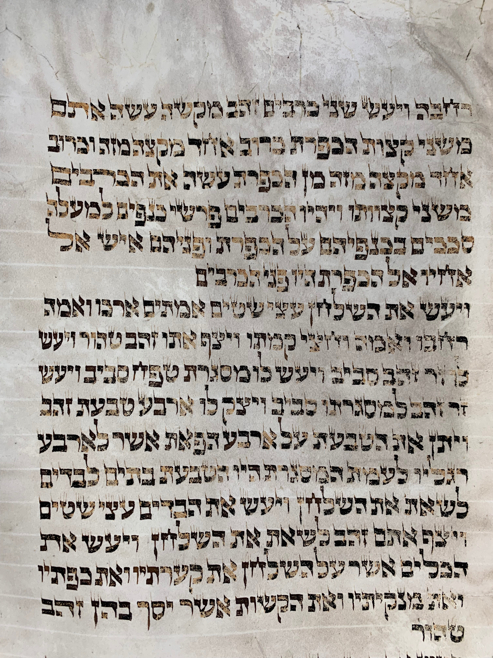 רחבה ויעש שני כרבים זהב מקשה עשה אתם
משני קצות הכפרת כרוב אחד מקצה מזה וכרוב
אחד מקצה מזה מן הכפרת עשה את הכרבים
משני קצוותו ויהיו הכרבים פרשי כנפים למעלה
סככים בכנפיהם על הכפרת ופניהם איש אל
אחיו אל הכפרת היו פני הכרבים
ויעש את השלחן עצי שטים אמתים ארכו ואמה
רחבו ואמה וחצי קמתו ויצף אתו זהב טהור ויעש
לו זר זהב סביב ויעש לו מסגרת טפח סביב ויעש
זר זהב למסגרתו סביב ויצק לו ארבע טבעת זהב
ויתן את הטבעת על ארבע הפאת אשר לארבע
רגליו לעמת המסגרת היו הטבעת בתים לבדים
לשאת את השלחן ויעש את הבדים עצי שטים
ויצף אתם זהב לשאת את השלחן ויעש את
הכלים אשר על השלחן את קערתיו ואת כפתיו
ואת מנקיתיו ואת הקשות אשר יסך בהן זהב
טהור